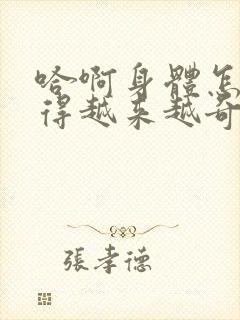 哈啊身體怎
得越来越奇
張孝德